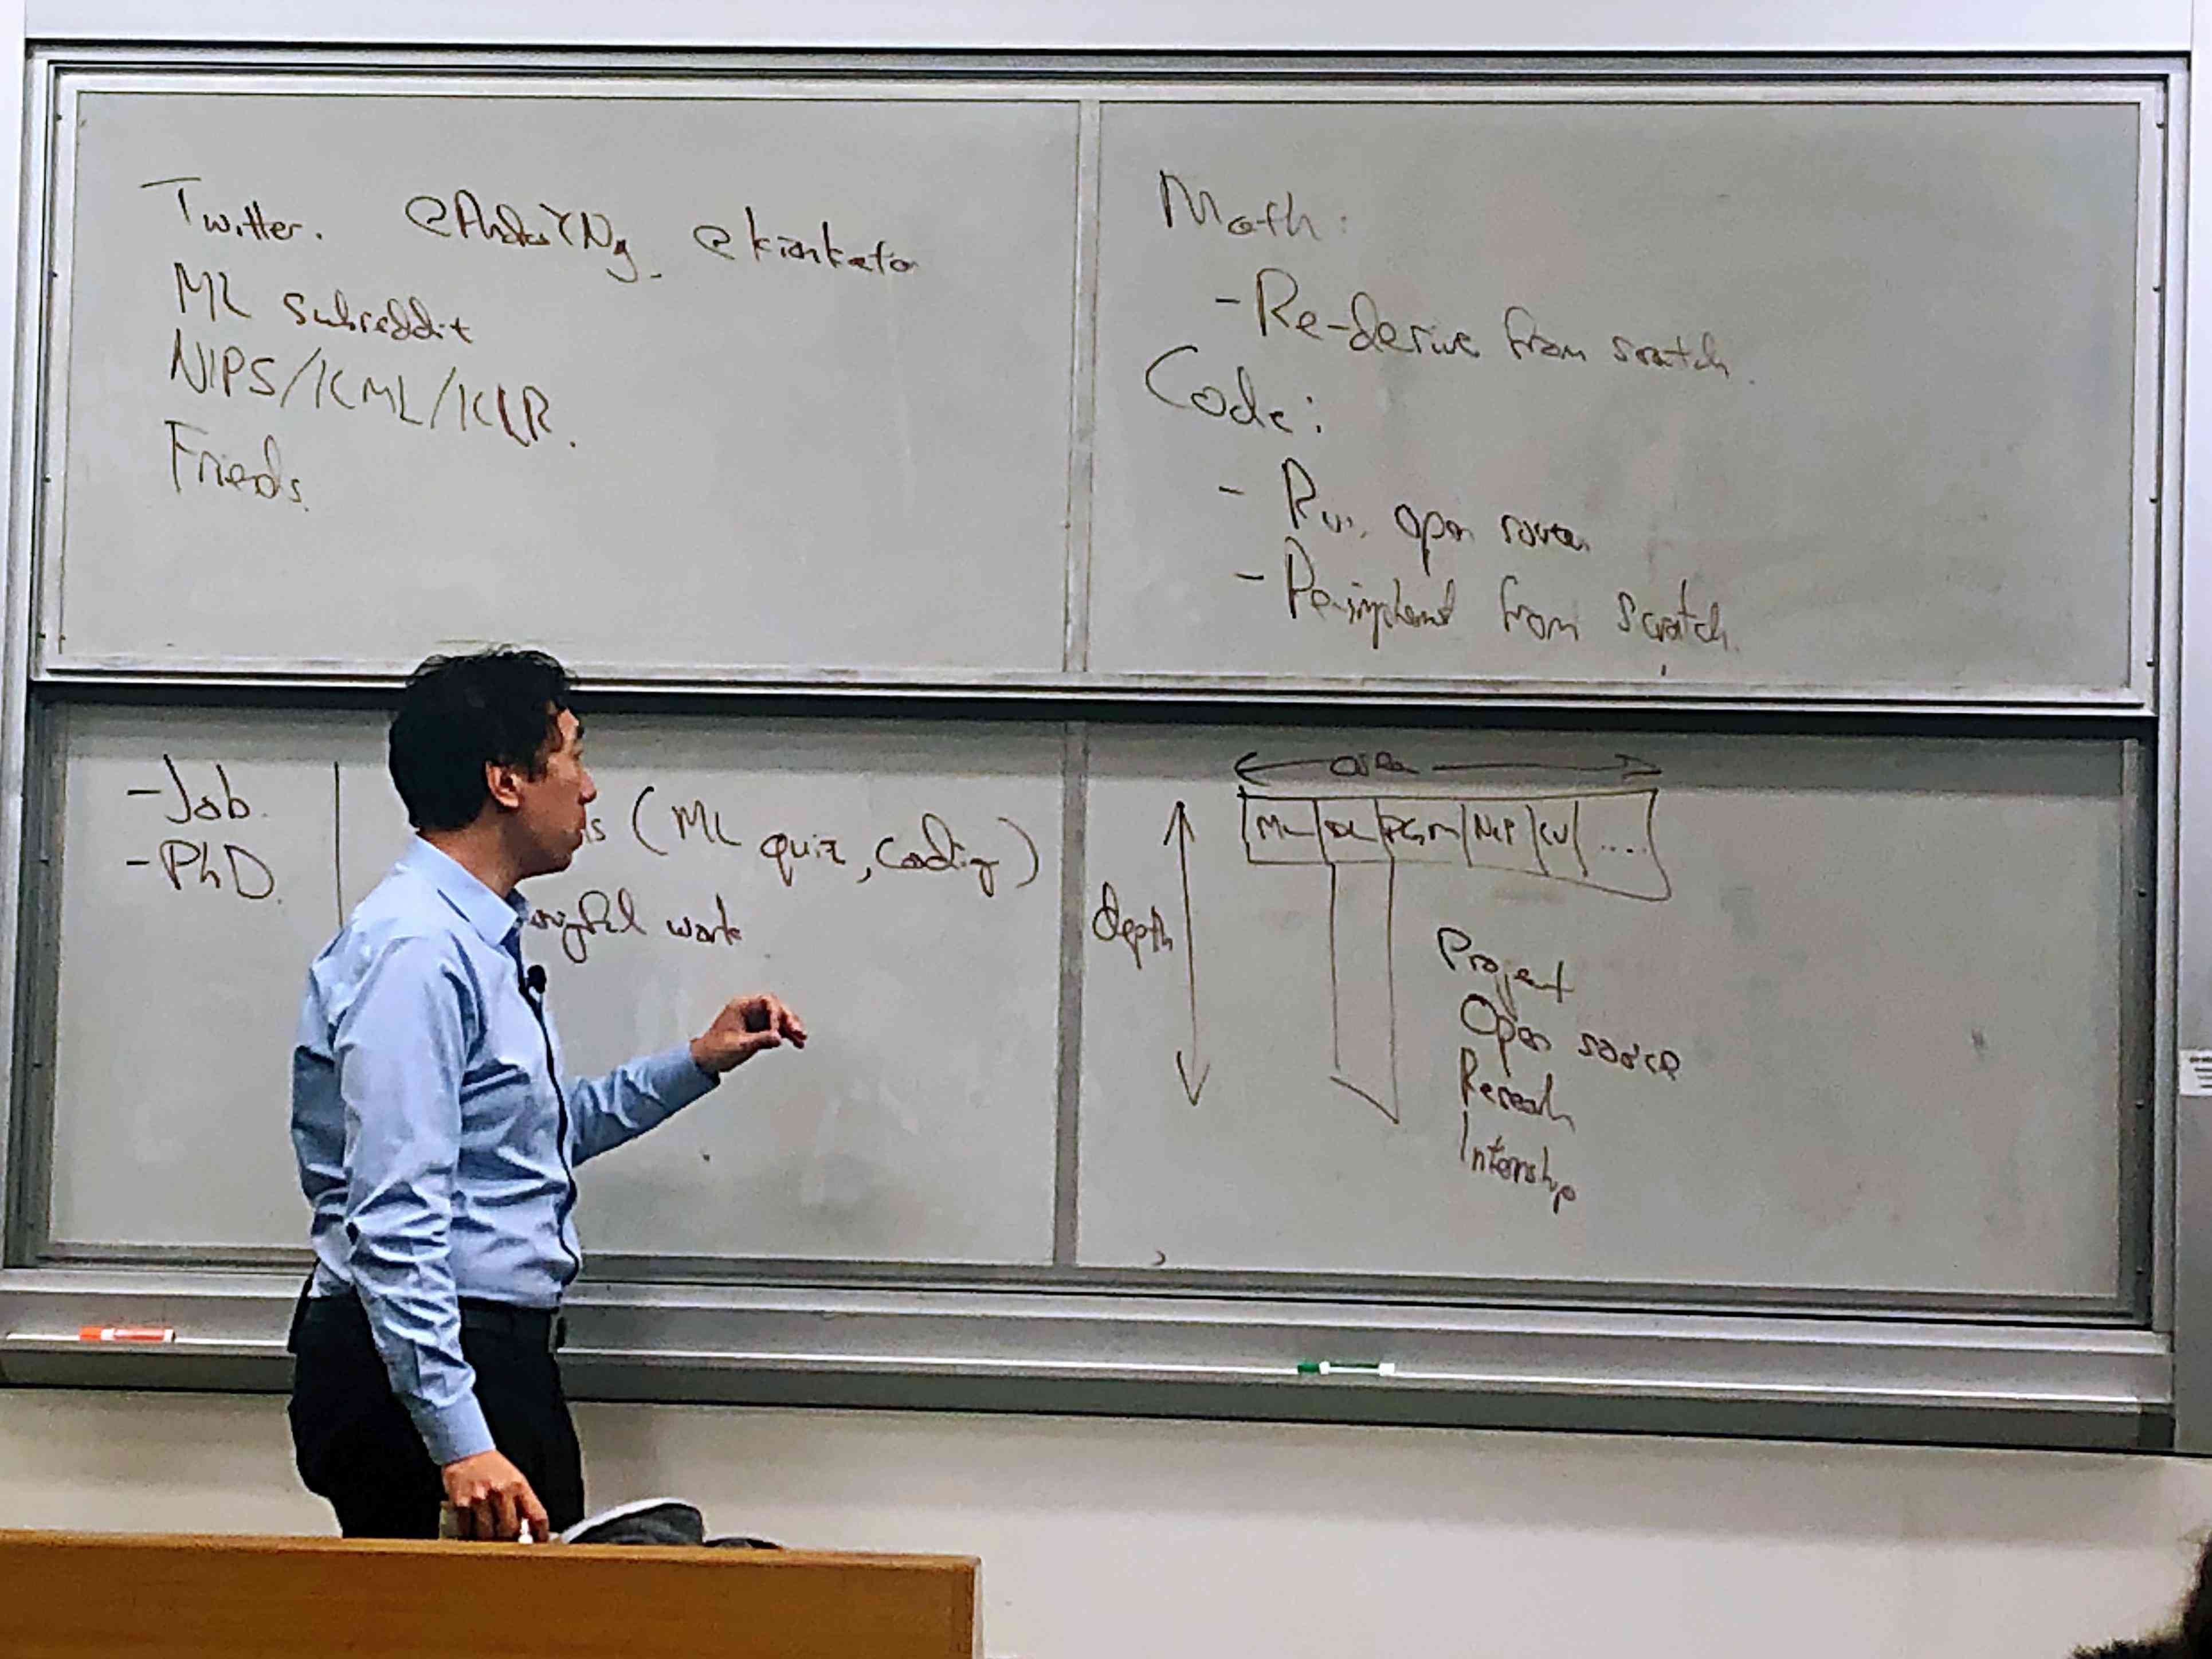 Twitter. @AndrewYNg, @kiankatan
ML subreddit
NIPS/ICML/ICLR.
Friends.
Math:
- Re-derive from scratch.
Code:
- Run open source
- Re-implement from scratch.
- Job.
- PhD.
(ML quiz, Coding)
work
area
ML | DL | PGM | NLP | CV | ....
depth
Project
Open source
Research
Internship